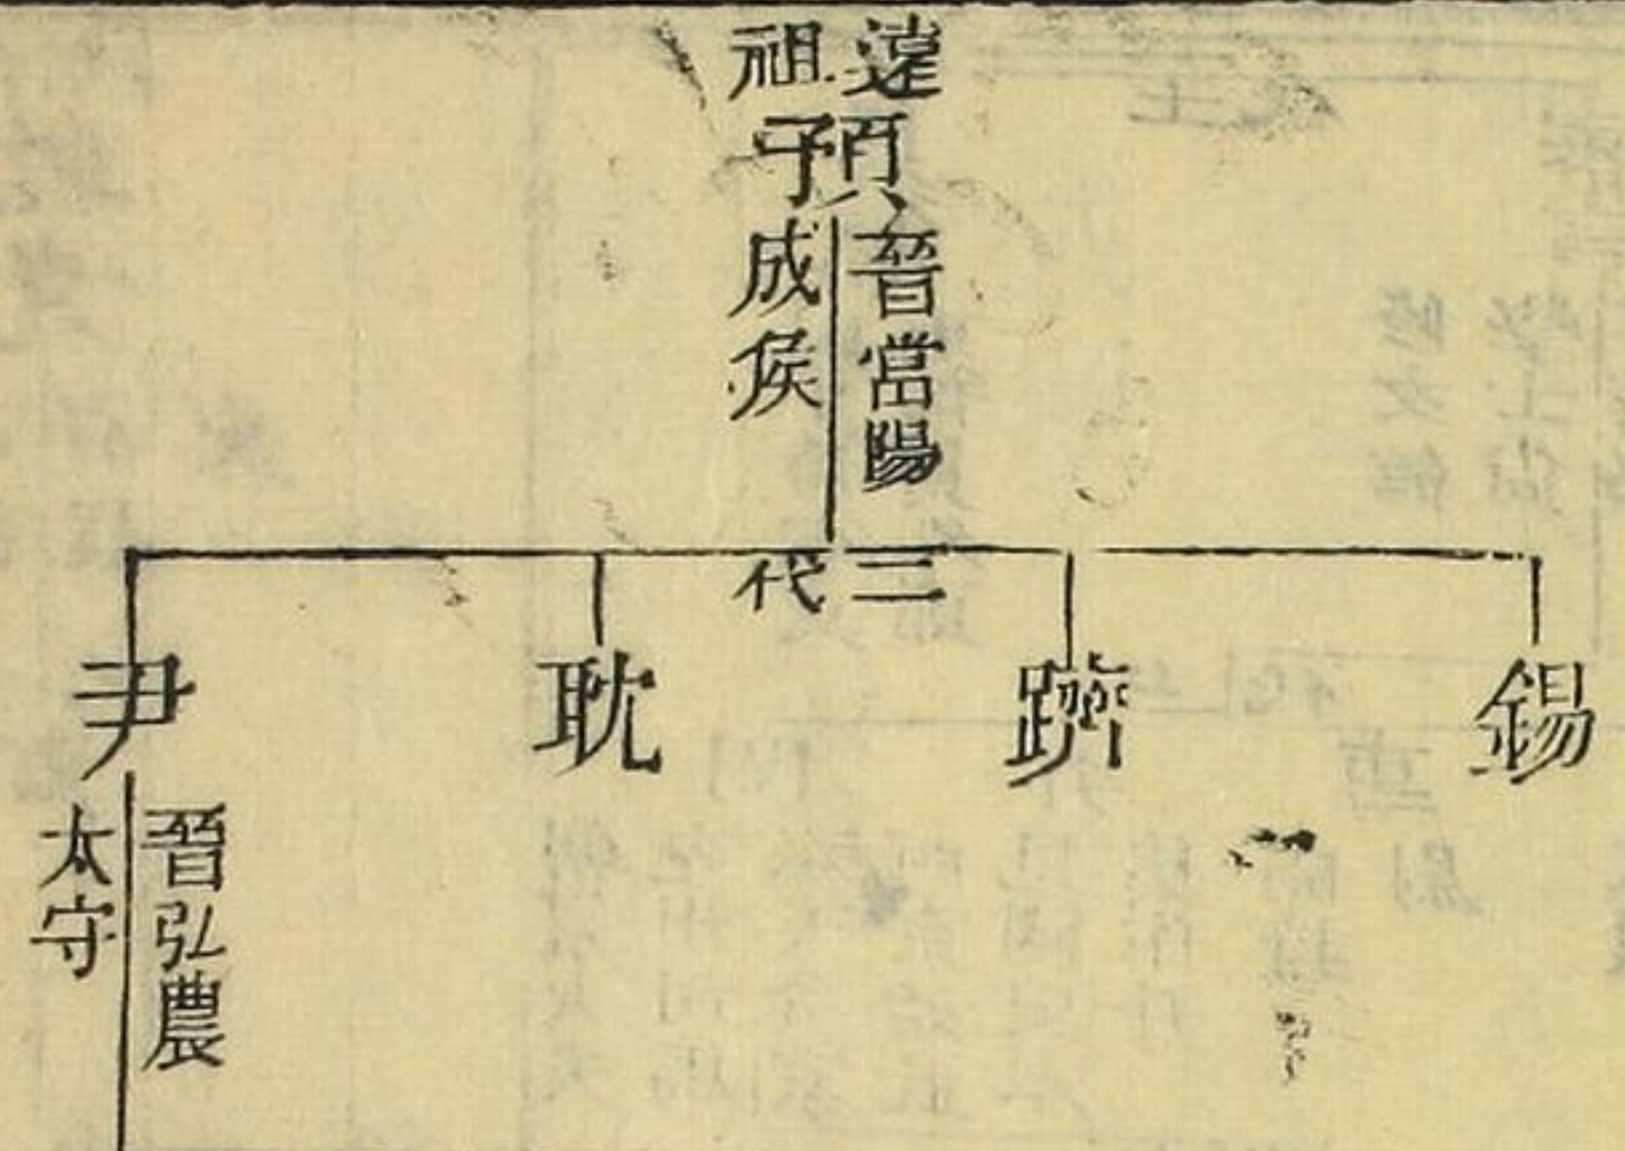 遠祖
預
晉當陽
成侯
三代
錫
躋
耽
尹
晉弘農
太守